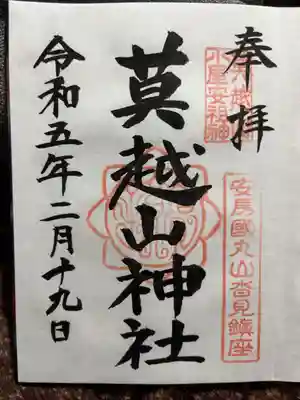 奉拝
安房國丸山沓見鎮座
莫越山神社
令和五年二月十九日